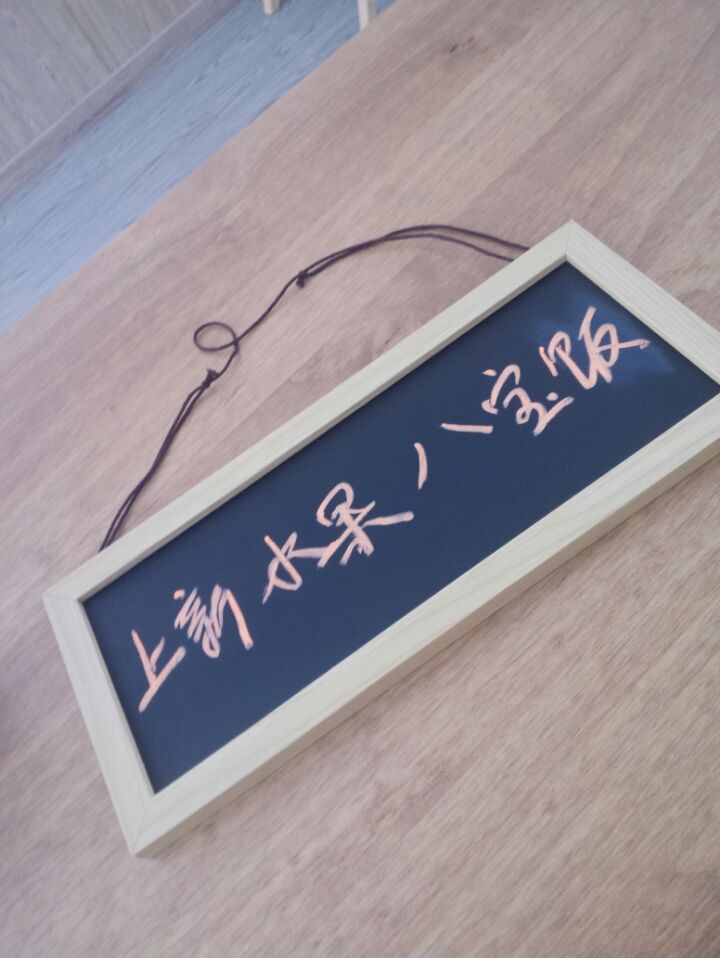 上新水果八宝饭